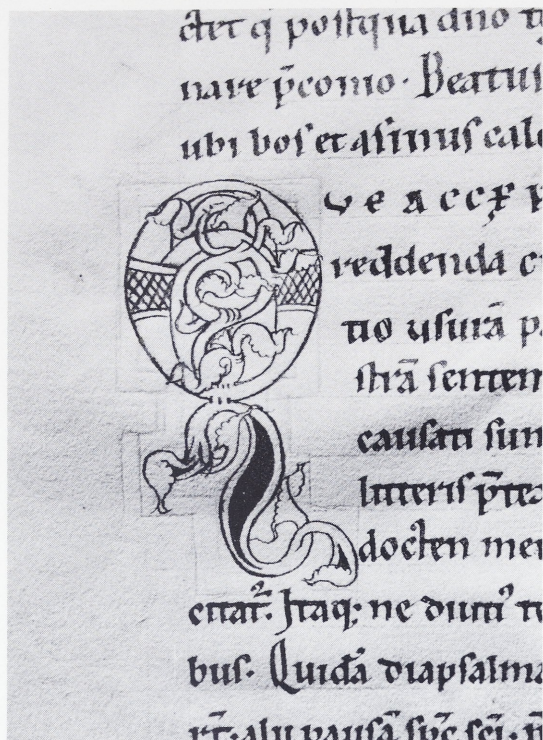 ctet q̇ postquā dño
nare p̄conio. Beatus
ubi bos et asinus
QVE ACCEP
reddenda
tio usurā
strā senten
causati sun
litteris p̄te
docten me
citat᷑. Itaq; ne diuti᾽
bus. Quidā diapsalma
rt̄. alii pausā sp̄c sc̄i.